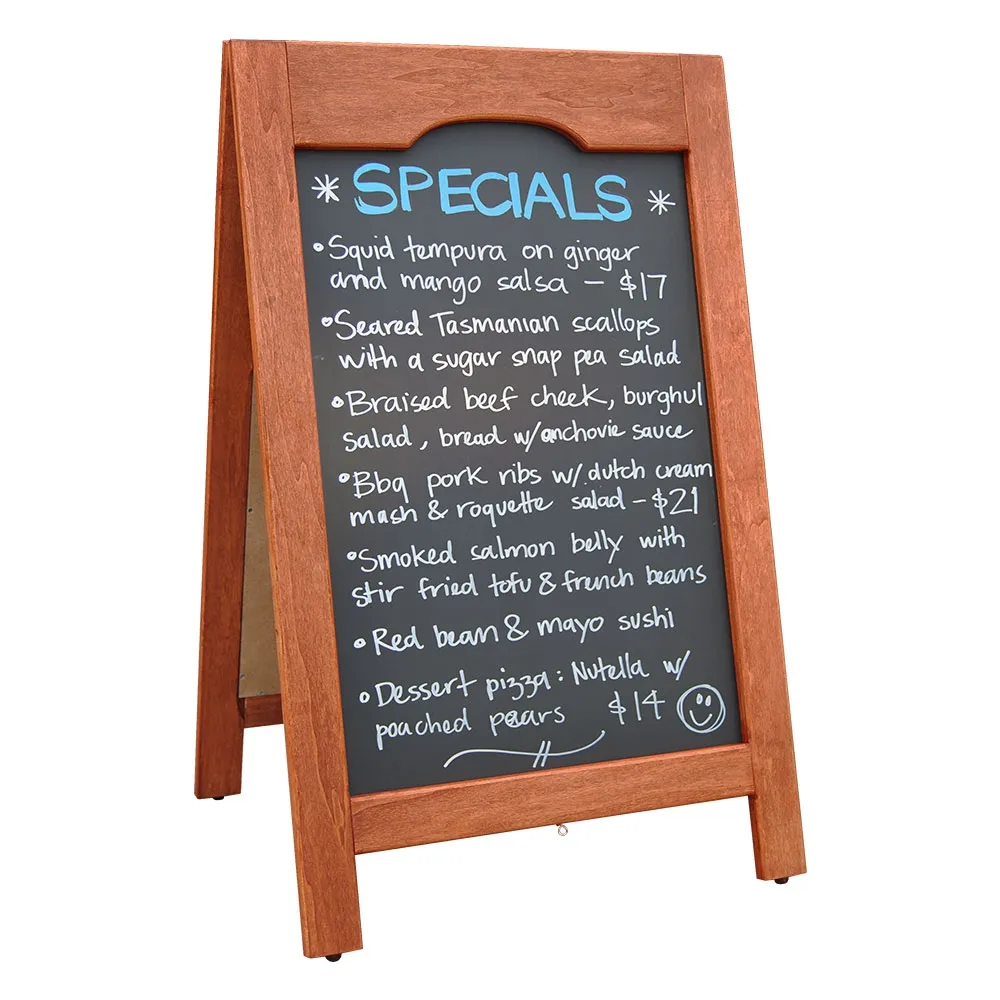 * SPECIALS *
• Squid tempura on ginger
and mango salsa – $17
• Seared Tasmanian scallops
with a sugar snap pea salad
• Braised beef cheek, burghul
salad, bread w/anchovie sauce
• Bbq pork ribs w/ dutch cream
mash & roquette salad – $21
• Smoked salmon belly with
stir fried tofu & french beans
• Red bean & mayo sushi
• Dessert pizza: Nutella w/
poached pears $14